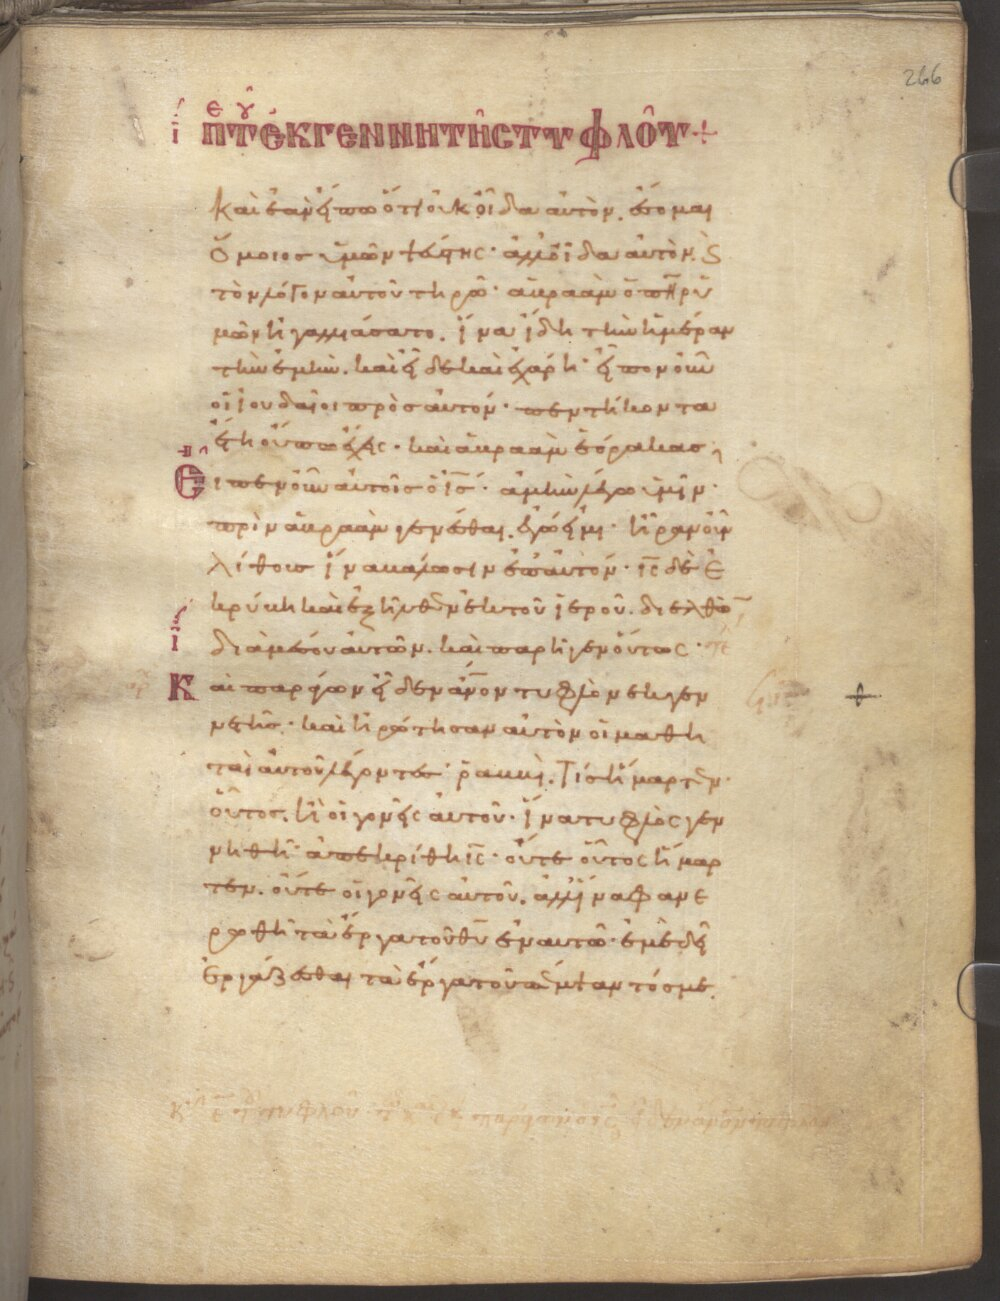 266
ι ΠΤ ἐΚ ΓΕΝΝΗΤῆC ΤΥΦΛΟῦ +
Καὶ ἐὰν εἴπω ὅτι οὐκ οἶδα αὐτὸν, ἔσομαι
ὅμοιος ὑμῶν ψεύστης· ἀλλ' οἶδα αὐτὸν. ϗ
τὸν λόγον αὐτοῦ τηρῶ· ἀβραὰμ ὁ πηρ ὑ
μῶν ἠγαλλιάσατο. ἵνα ἴδη τὴν ἡμέραν
τὴν ἐμὴν. καὶ εἶδε καὶ ἐχάρη· εἶπον οὖν
οἱ ἰουδαῖοι πρὸς αὐτόν· πεντήκοντα
ἔτη οὔπω ἔχεις· καὶ ἀβραὰμ ἑόρακας;
Εἶπεν οὖν αὐτοῖς ὁ ις· ἀμὴν λέγω ὑμῖν·
πρὶν ἀβραὰμ γενέσθαι. ἐγώ εἰμι· ἦραν οὖν
λίθους ἵνα βάλωσιν ἐπ' αὐτόν· ις δὲ ἐ
κρύβη καὶ ἐξῆλθεν ἐκ τοῦ ἱεροῦ. διελθὼν
διὰ μέσου αὐτῶν. καὶ παρῆγεν οὕτως·
Καὶ παράγων εἶδεν ανον τυφλὸν ἐκ γεν
νετῆς· καὶ ἠρώτησαν αὐτὸν οἱ μαθη
ταὶ αὐτοῦ λέγοντες· ῥαββὶ. τίς ἥμαρτεν·
οὗτος. ἢ οἱ γονεῖς αὐτοῦ· ἵνα τυφλὸς γεν
νηθῆ· ἀπεκρίθη ις· οὔτε οὗτος ἥμαρ
τεν. οὔτε οἱ γονεῖς αὐτοῦ. ἀλλ' ἵνα φανε
ρωθῆ τὰ ἔργα τοῦ θυ ἐν αὐτῶ· ἐμὲ δεῖ
ἐργάζεσθαι τὰ ἔργα τοῦ πέμψαντός με.